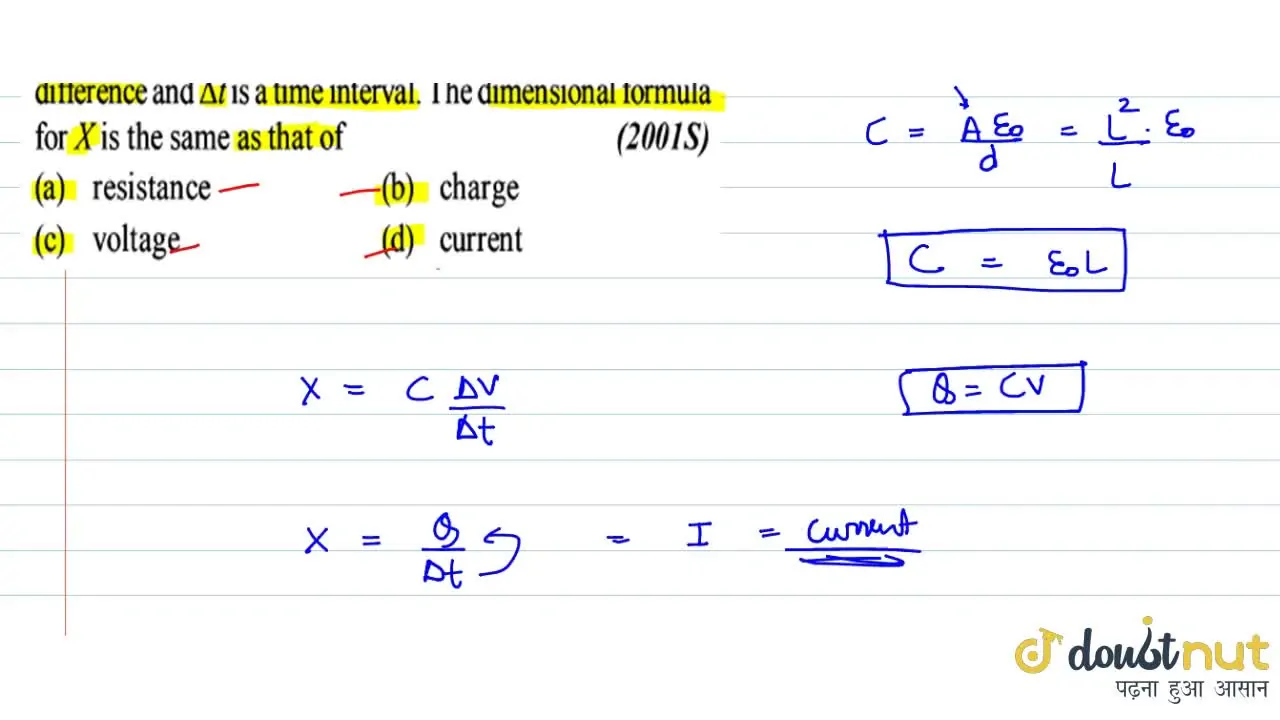 difference and Δt is a time interval. The dimensional formula
for X is the same as that of (2001S)
(a) resistance (b) charge
(c) voltage (d) current
C = A ε₀ / d = L² / L . ε₀
C = ε₀ L
X = C ΔV / Δt
Q = CV
X = Q / Δt = I = Current
doubtnut
पढ़ना हुआ आसान